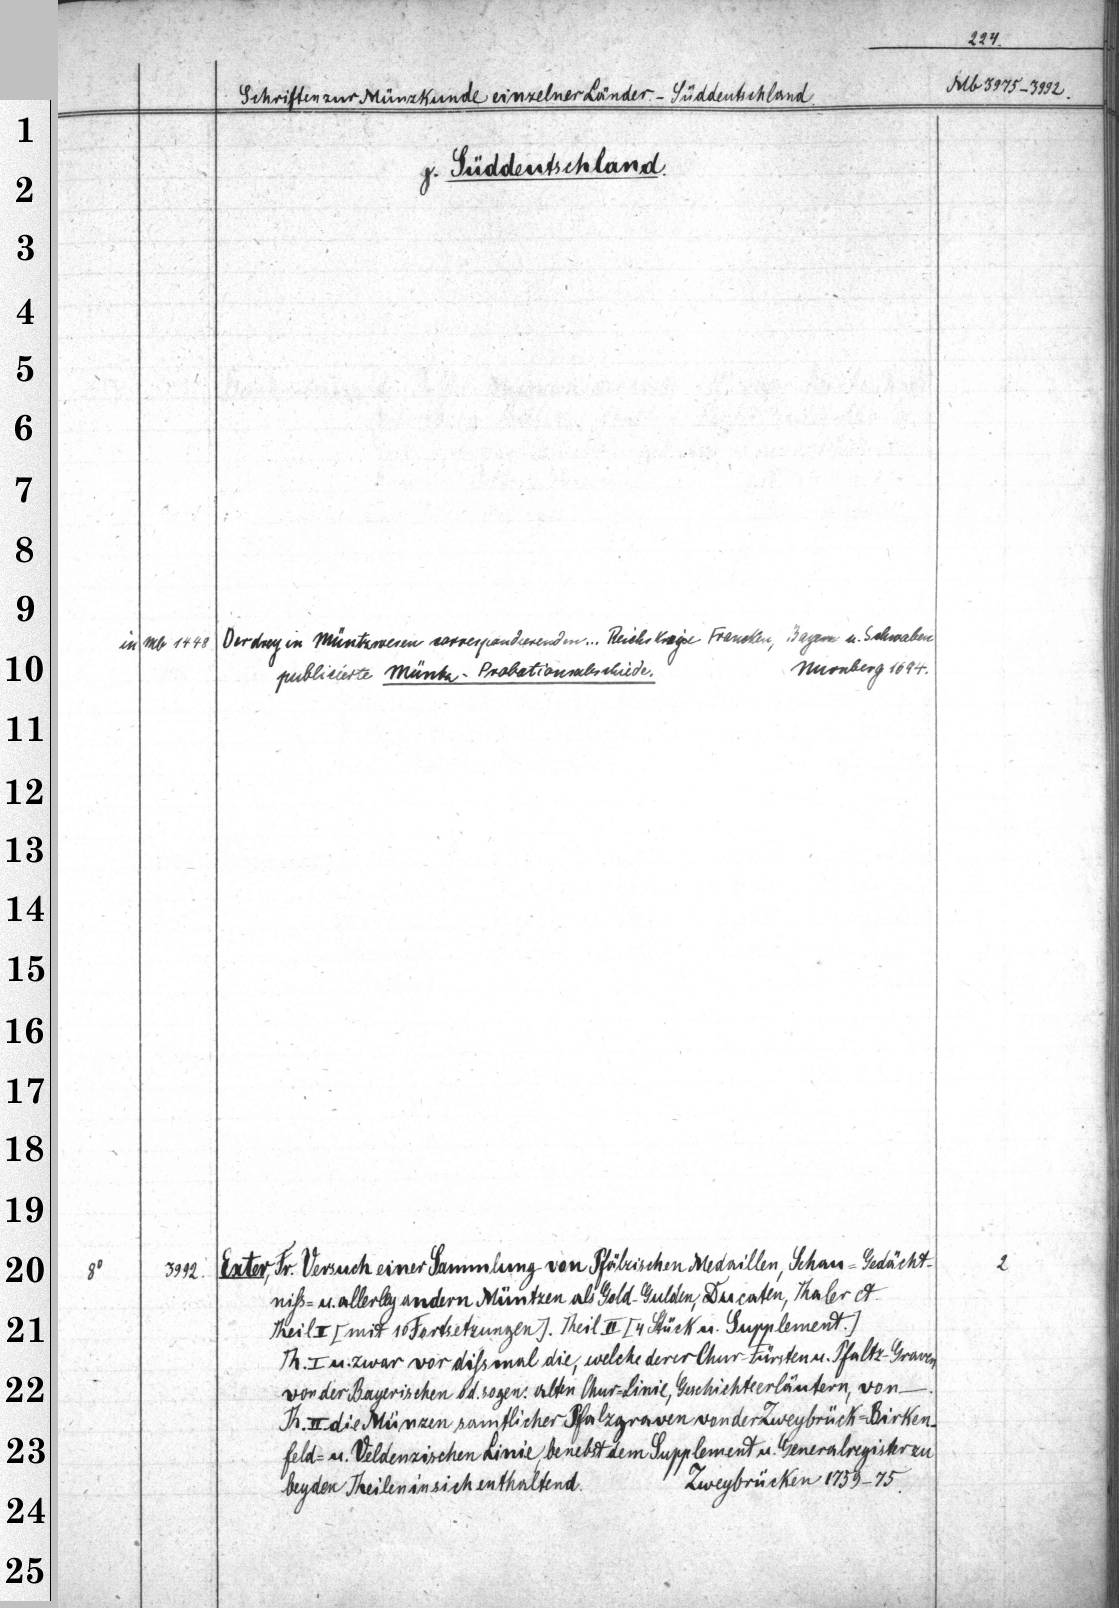 224.
Schriften zur Münzkunde einzelner Länder. - Süddeutschland.
Mb 3975-3992.
γ. Süddeutschland.
1
2
3
4
5
6
7
8
9
in Mb 1448 Der drey in Müntzwesen correspondierenden... Reichs Krayse Francken, Bayern u. Schwaben
10
publicierte Müntz- Probationsabschiede. Nürnberg 1694.
11
12
13
14
15
16
17
18
19
20
8° 3992. Exter, Fr. Versuch einer Sammlung von Pfälzischen Medaillen, Schau= Gedächt- 2
niß= u. allerley andern Müntzen als Gold-Gulden, Ducaten, Thaler et
21
Theil I [mit 10 Fortsetzungen]. Theil II [4 Stück u. Supplement.]
Th. I u. zwar vor dißmal die, welche derer Chur-Fürsten u. Pfaltz-Graven
22
von der Bayerischen od. sogen. alten Chur=Linie, Geschichte erläutern, von —.
Th. II die Münzen samtlicher Pfalzgraven von der Zweybrück=Birken-
23
feld= u. Veldenzischen Linie, benebst dem Supplement u. Generalregister zu
beyden Theilen in sich enthaltend. Zweybrücken 1759-75.
24
25